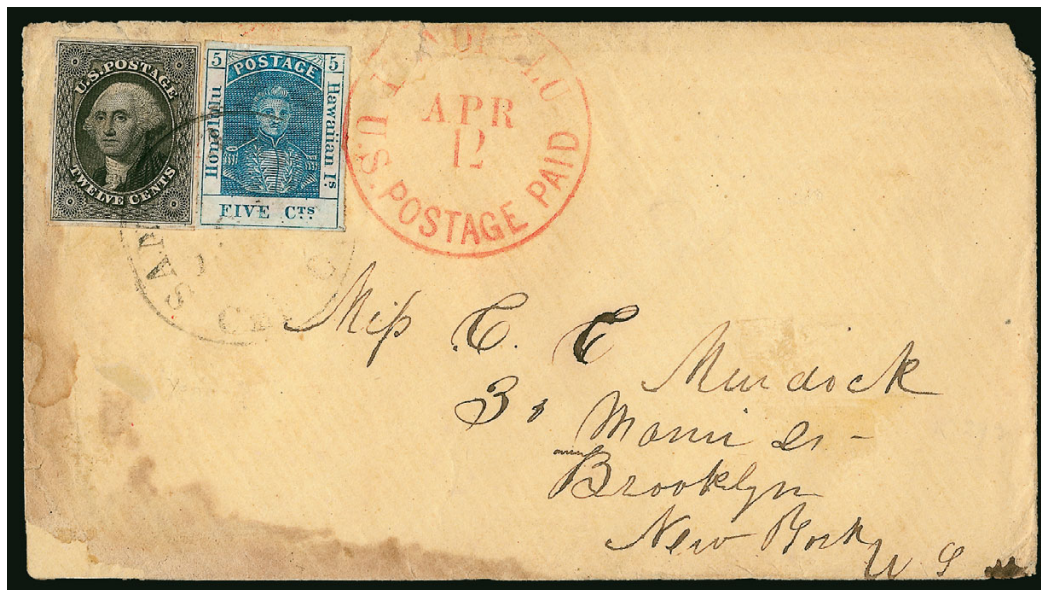 U.S. POSTAGE
TWELVE CENTS
5 POSTAGE 5
Honolulu
Hawaiian Is.
FIVE CTS
HONOLULU
APR
12
U.S. POSTAGE PAID
SAN
CAL
Miss C. C Murdock
St -
Brooklyn
New York
U S